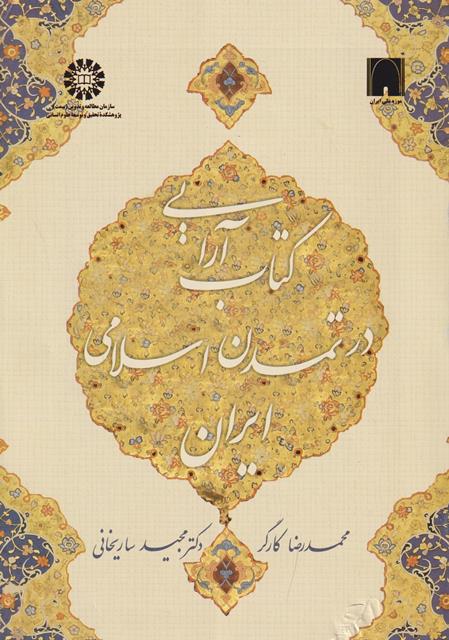 موزه ملی ایران
سازمان مطالعه و تدوین (سمت)
پژوهشکدهٔ تحقیق و توسعهٔ علوم انسانی
کتاب آرایی
در تمدن اسلامی
ایران
محمدرضا کارگر دکتر مجید ساریخانی